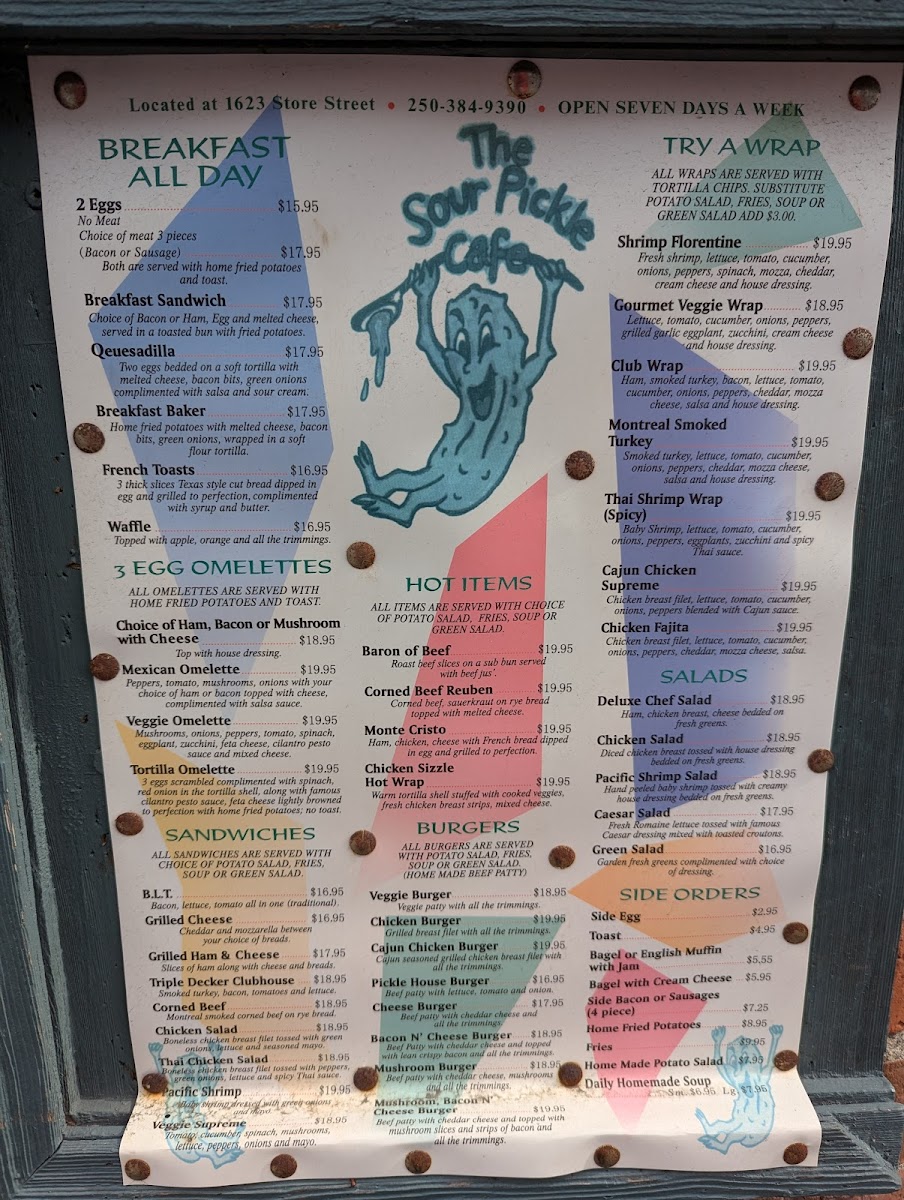 Located at 1623 Store Street • 250-384-9390 • OPEN SEVEN DAYS A WEEK
BREAKFAST
ALL DAY
2 Eggs $15.95
No Meat
Choice of meat 3 pieces
(Bacon or Sausage) $17.95
Both are served with home fried potatoes
and toast.
Breakfast Sandwich $17.95
Choice of Bacon or Ham, Egg and melted cheese,
served in a toasted bun with fried potatoes.
Qeuesadilla $17.95
Two eggs bedded on a soft tortilla with
melted cheese, bacon bits, green onions
complimented with salsa and sour cream.
Breakfast Baker $17.95
Home fried potatoes with melted cheese, bacon
bits, green onions, wrapped in a soft
flour tortilla.
French Toasts $16.95
3 thick slices Texas style cut bread dipped in
egg and grilled to perfection, complimented
with syrup and butter.
Waffle $16.95
Topped with apple, orange and all the trimmings.
3 EGG OMELETTES
ALL OMELETTES ARE SERVED WITH
HOME FRIED POTATOES AND TOAST.
Choice of Ham, Bacon or Mushroom
with Cheese $18.95
Top with house dressing.
Mexican Omelette $19.95
Peppers, tomato, mushrooms, onions with your
choice of ham or bacon topped with cheese,
complimented with salsa sauce.
Veggie Omelette $19.95
Mushrooms, onions, peppers, tomato, spinach,
eggplant, zucchini, feta cheese, cilantro pesto
sauce and mixed cheese.
Tortilla Omelette $19.95
3 eggs scrambled complimented with spinach,
red onion in the tortilla shell, along with famous
cilantro pesto sauce, feta cheese lightly browned
to perfection with home fried potatoes; no toast.
SANDWICHES
ALL SANDWICHES ARE SERVED WITH
CHOICE OF POTATO SALAD, FRIES,
SOUP OR GREEN SALAD.
B.L.T. $16.95
Bacon, lettuce, tomato all in one (traditional).
Grilled Cheese $16.95
Cheddar and mozzarella between
your choice of breads.
Grilled Ham & Cheese $17.95
Slices of ham along with cheese and breads.
Triple Decker Clubhouse $18.95
Smoked turkey, bacon, tomatoes and lettuce.
Corned Beef $18.95
Montreal smoked corned beef on rye bread.
Chicken Salad $18.95
Boneless chicken breast filet tossed with green
onions, lettuce and seasoned mayo.
Thai Chicken Salad $18.95
Boneless chicken breast filet tossed with peppers,
green onions, lettuce and spicy Thai sauce.
Pacific Shrimp $19.95
Baby shrimp dressed with green onions
and mayo.
Veggie Supreme $18.95
Tomato, cucumber, spinach, mushrooms,
lettuce, peppers, onions and mayo.
The
Sour Pickle
Cafe
HOT ITEMS
ALL ITEMS ARE SERVED WITH CHOICE
OF POTATO SALAD, FRIES, SOUP OR
GREEN SALAD.
Baron of Beef $19.95
Roast beef slices on a sub bun served
with beef jus'.
Corned Beef Reuben $19.95
Corned beef, sauerkraut on rye bread
topped with melted cheese.
Monte Cristo $19.95
Ham, chicken, cheese with French bread dipped
in egg and grilled to perfection.
Chicken Sizzle
Hot Wrap $19.95
Warm tortilla shell stuffed with cooked veggies,
fresh chicken breast strips, mixed cheese.
BURGERS
ALL BURGERS ARE SERVED
WITH POTATO SALAD, FRIES,
SOUP OR GREEN SALAD.
(HOME MADE BEEF PATTY)
Veggie Burger $18.95
Veggie patty with all the trimmings.
Chicken Burger $19.95
Grilled breast filet with all the trimmings.
Cajun Chicken Burger $19.95
Cajun seasoned grilled chicken breast filet with
all the trimmings.
Pickle House Burger $16.95
Beef patty with lettuce, tomato and onion.
Cheese Burger $17.95
Beef patty with cheddar cheese and
all the trimmings.
Bacon N' Cheese Burger $18.95
Beef Patty with cheddar cheese and topped
with lean crispy bacon and all the trimmings.
Mushroom Burger $18.95
Beef patty with cheddar cheese, mushrooms
and all the trimmings.
Mushroom, Bacon N'
Cheese Burger $19.95
Beef patty with cheddar cheese and topped with
mushroom slices and strips of bacon and
all the trimmings.
TRY A WRAP
ALL WRAPS ARE SERVED WITH
TORTILLA CHIPS. SUBSTITUTE
POTATO SALAD, FRIES, SOUP OR
GREEN SALAD ADD $3.00.
Shrimp Florentine $19.95
Fresh shrimp, lettuce, tomato, cucumber,
onions, peppers, spinach, mozza, cheddar,
cream cheese and house dressing.
Gourmet Veggie Wrap $18.95
Lettuce, tomato, cucumber, onions, peppers,
grilled garlic eggplant, zucchini, cream cheese
and house dressing.
Club Wrap $19.95
Ham, smoked turkey, bacon, lettuce, tomato,
cucumber, onions, peppers, cheddar, mozza
cheese, salsa and house dressing.
Montreal Smoked
Turkey $19.95
Smoked turkey, lettuce, tomato, cucumber,
onions, peppers, cheddar, mozza cheese,
salsa and house dressing.
Thai Shrimp Wrap
(Spicy) $19.95
Baby Shrimp, lettuce, tomato, cucumber,
onions, peppers, eggplants, zucchini and spicy
Thai sauce.
Cajun Chicken
Supreme $19.95
Chicken breast filet, lettuce, tomato, cucumber,
onions, peppers blended with Cajun sauce.
Chicken Fajita $19.95
Chicken breast filet, lettuce, tomato, cucumber,
onions, peppers, cheddar, mozza cheese, salsa.
SALADS
Deluxe Chef Salad $18.95
Ham, chicken breast, cheese bedded on
fresh greens.
Chicken Salad $18.95
Diced chicken breast tossed with house dressing
bedded on fresh greens.
Pacific Shrimp Salad $18.95
Hand peeled baby shrimp tossed with creamy
house dressing bedded on fresh greens.
Caesar Salad $17.95
Fresh Romaine lettuce tossed with famous
Caesar dressing mixed with toasted croutons.
Green Salad $16.95
Garden fresh greens complimented with choice
of dressing.
SIDE ORDERS
Side Egg $2.95
Toast $4.95
Bagel or English Muffin
with Jam $5.55
Bagel with Cream Cheese $5.95
Side Bacon or Sausages
(4 piece) $7.25
Home Fried Potatoes $8.95
Fries $9.95
Home Made Potato Salad $7.95
Daily Homemade Soup
Sm. $6.95 Lg. $7.95